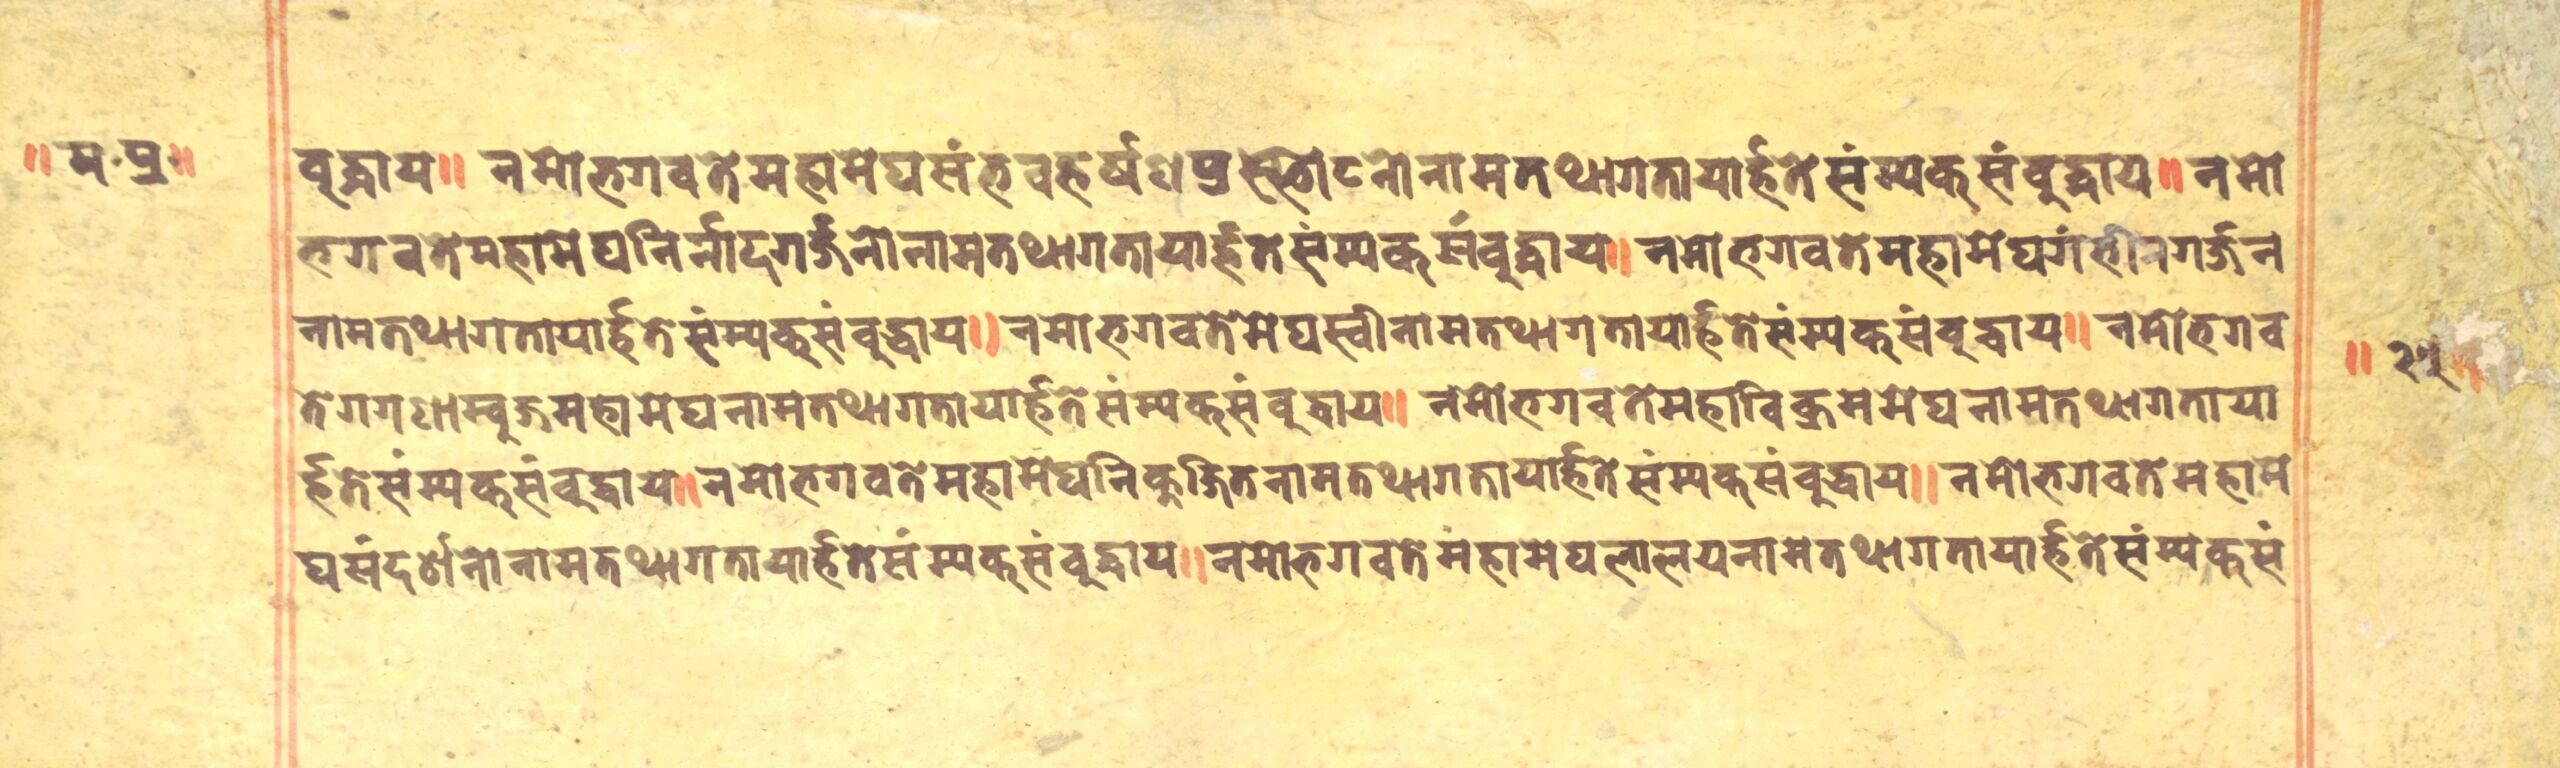 ॥ म॰ प्र॰ ॥
बुद्धाय॥ नमोभगवतेमहामेघसंभवहर्षणप्रस्फोटनोनामतथागतायार्हतेसंम्यक्संबुद्धाय॥ नमो
भगवतेमहामेघनिर्नादगर्ज्जनोनामतथागतायार्हतेसंम्यक्संबुद्धाय॥ नमोभगवतेमहामेघगंभीरगर्ज्जन
नामतथागतायार्हतेसंम्यक्संबुद्धाय॥ नमोभगवतेमेघस्वीनामतथागतायार्हतेसंम्यक्संबुद्धाय॥ नमोभगव
तेगगणाम्बुजमहामेघनामतथागतायार्हतेसंम्यक्संबुद्धाय॥ नमोभगवतेमहाविक्रममेघनामतथागताया
र्हतेसंम्यक्संबुद्धाय॥ नमोभगवतेमहामेघनिकूजितनामतथागतायार्हतेसंम्यक्संबुद्धाय॥ नमोभगवतेमहामे
घसंदर्शनोनामतथागतायार्हतेसंम्यक्संबुद्धाय॥ नमोभगवतेमहामेघलालयनामतथागतायार्हतेसंम्यक्सं